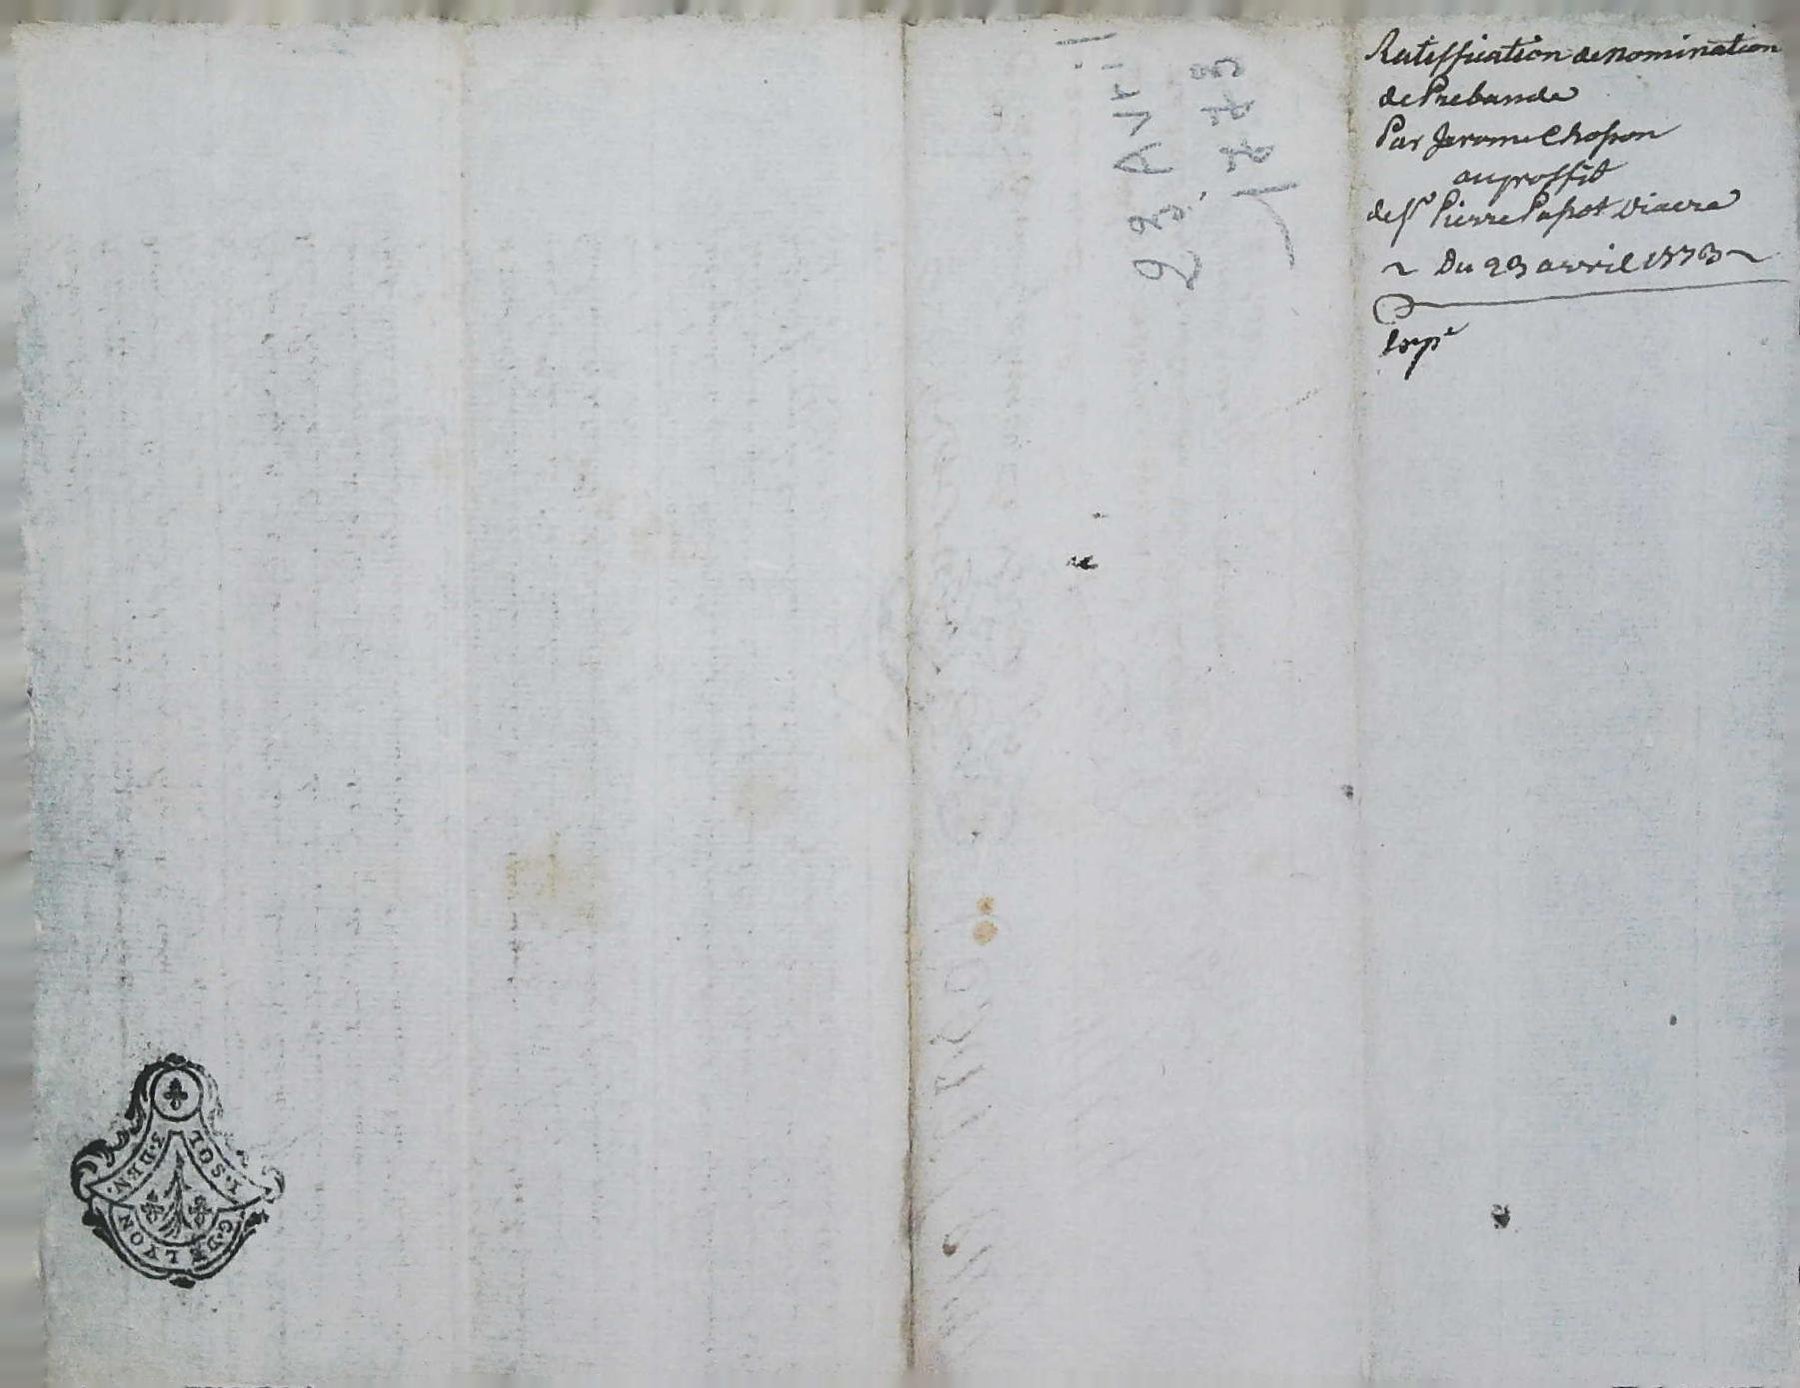 Ratiffication de nomination
de Prebande
Par Jerome Chopon
au proffit
de sr Pierre Papot Diacre
~ Du 23 avril 1773 ~
23 Avril
1773
1. SOL
3. DEN.
G. DE LYON